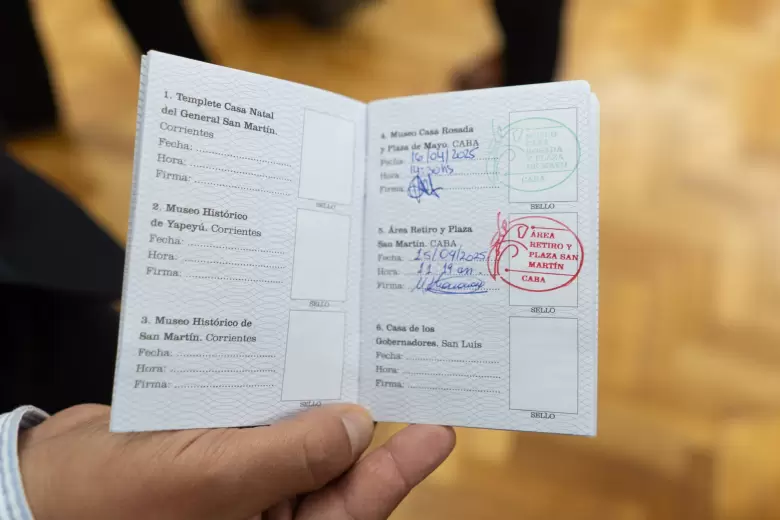 1. Templete Casa Natal
del General San Martín.
Corrientes
Fecha:
Hora:
Firma:
SELLO
2. Museo Histórico
de Yapeyú. Corrientes
Fecha:
Hora:
Firma:
SELLO
3. Museo Histórico de
San Martín. Corrientes
Fecha:
Hora:
Firma:
SELLO
4. Museo Casa Rosada
y Plaza de Mayo. CABA
Fecha: 16/04/2025
Hora:
Firma:
MUSEO
CASA
ROSADA
Y PLAZA
DE MAYO
CABA
SELLO
5. Área Retiro y Plaza
San Martín. CABA
Fecha: 15/04/2025
Hora: 11:19 am
Firma:
ÁREA
RETIRO Y
PLAZA SAN
MARTÍN
CABA
SELLO
6. Casa de los
Gobernadores. San Luis
Fecha:
Hora:
Firma:
SELLO